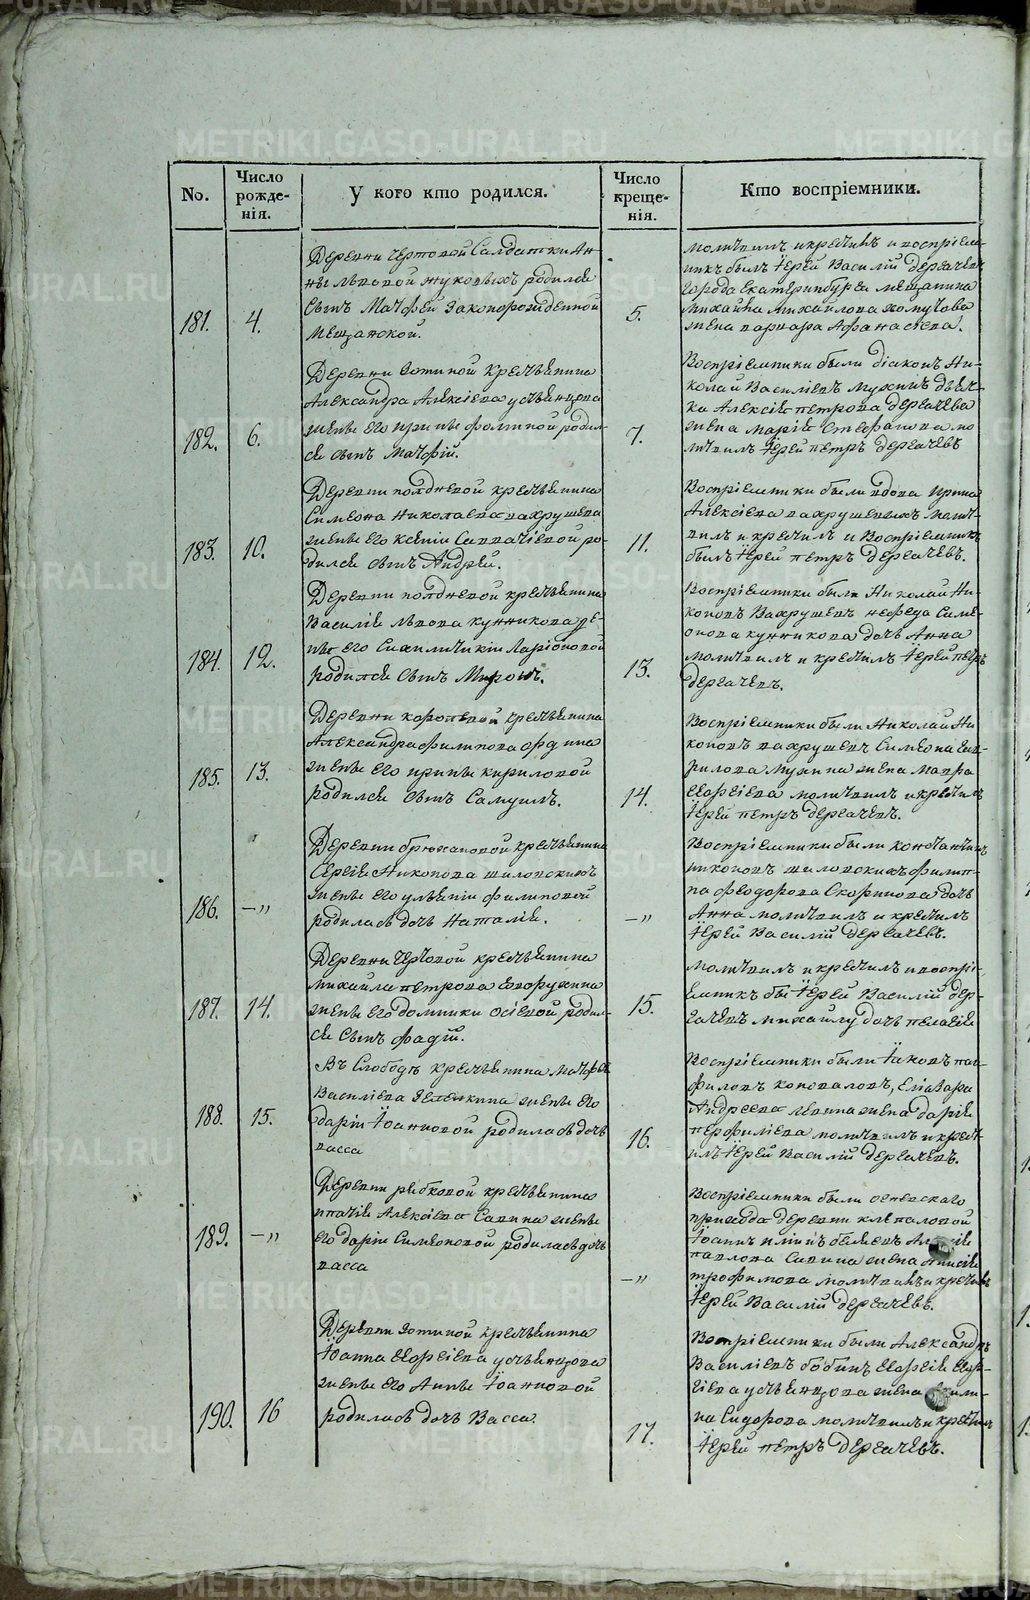 METRIKI.GASO-URAL.RU
No.
Число рожде-нія.
У кого кто родился.
Число креще-нія.
Кто воспріемники.
181.
4.
Деревни Чертовой Салдатки Ан-
ны Львовой Жуковыхъ родился
сынъ Матфей Законорожденной
Мещанской.
5.
молитвилъ и крестилъ и воспріем-
никъ былъ Іерей Василій Дергачевъ
города Екатеринбурга мещанина
Михайла Михайлова
жена варвара Афанасьева.
182.
6.
Деревни Зотиной крестьянина
Александра Алексіева устьянцова
женѣ его иринѣ фоминой родил-
ся сынъ Матфій.
7.
Воспріемники были діаконъ Ни-
колай Василіевъ Мухинъ дьяч-
ка Алексія петрова дергачева
жена Марія Стефанова мо-
литвилъ Іерей петръ дергачевъ
183.
10.
Деревни полдневой крестьянина
Симеона Николаева вахрушева
женѣ его ксеніи Савватіевой ро-
дился сынъ Андрей.
11.
Воспріемники были вдова ирина
Алексіева вахрушевыхъ молит-
вилъ и крестилъ и Воспріемникъ
былъ Іерей петръ дергачевъ.
184.
12.
Деревни полдневой крестьянина
Василія львова кунникова же-
нѣ его Ларіоновой
родился сынъ Миронъ.
13.
Воспріемники были Николай Ни-
коновъ Вахрушевъ нефеда Симе-
онова кунникова дочь Анна
молитвилъ и крестилъ Іерей петръ
дергачевъ.
185.
13.
Деревни крестьянина
Александра филипова
женѣ его иринѣ кириловой
родился сынъ Самуилъ.
14.
Воспріемники были Николай Ни-
коновъ вахрушевъ Симеона Гав-
рилова Мухина жена Мавра
Георгіева молитвилъ и крестилъ
Іерей петръ дергачевъ.
186.
—"
Деревни брюхановой крестьянина
Сергія Никонова шиловскихъ
женѣ его уліяніи филиповой
родилась дочь Наталія.
—"
Воспріемники были константинъ
никоновъ шиловскихъ филип-
па феодорова Скоринова дочь
Анна молитвилъ и крестилъ
Іерей Василій дергачевъ.
187.
14.
Деревни Чертовой крестьянина
михаила петрова
женѣ его домники осіевой родил-
ся сынъ фадій.
15.
молитвилъ и крестилъ и воспрі-
емникъ бы Іерей Василій дер-
гачевъ михаилу дочь пелагія
188.
15.
Въ Слободѣ крестьянина Матфея
Василіева Зеленкина женѣ его
даріи Іоанновой родилась дочь
васса
16.
Воспріемники были Іаковъ пан-
филовъ коноваловъ, Еліазара
Андреева левина жена дарія
перфиліева молитвилъ и крест-
илъ Іерей Василій дергачевъ.
189.
—"
Деревни рыбковой крестьянина
ипатія Алексіева Савина женѣ
его даріи Симеоновой родилась дочь
васса
—"
Воспріемники были
прихода деревни клепаловой
Іоаннъ беляевъ
павлова Савина жена анисія
трофимова молитвилъ и крестилъ
Іерей Василій дергачевъ.
190.
16
Деревни Зотиной крестьянина
Іоанна Георгіева устьянцова
женѣ его Аннѣ Іоанновой
родилась дочь Васса.
17.
Воспріемники были Александръ
Василіевъ бобинъ Георгія Геор-
гіева устьянцова жена
на Сидорова молитвилъ и крестилъ
Іерей петръ дергачевъ.